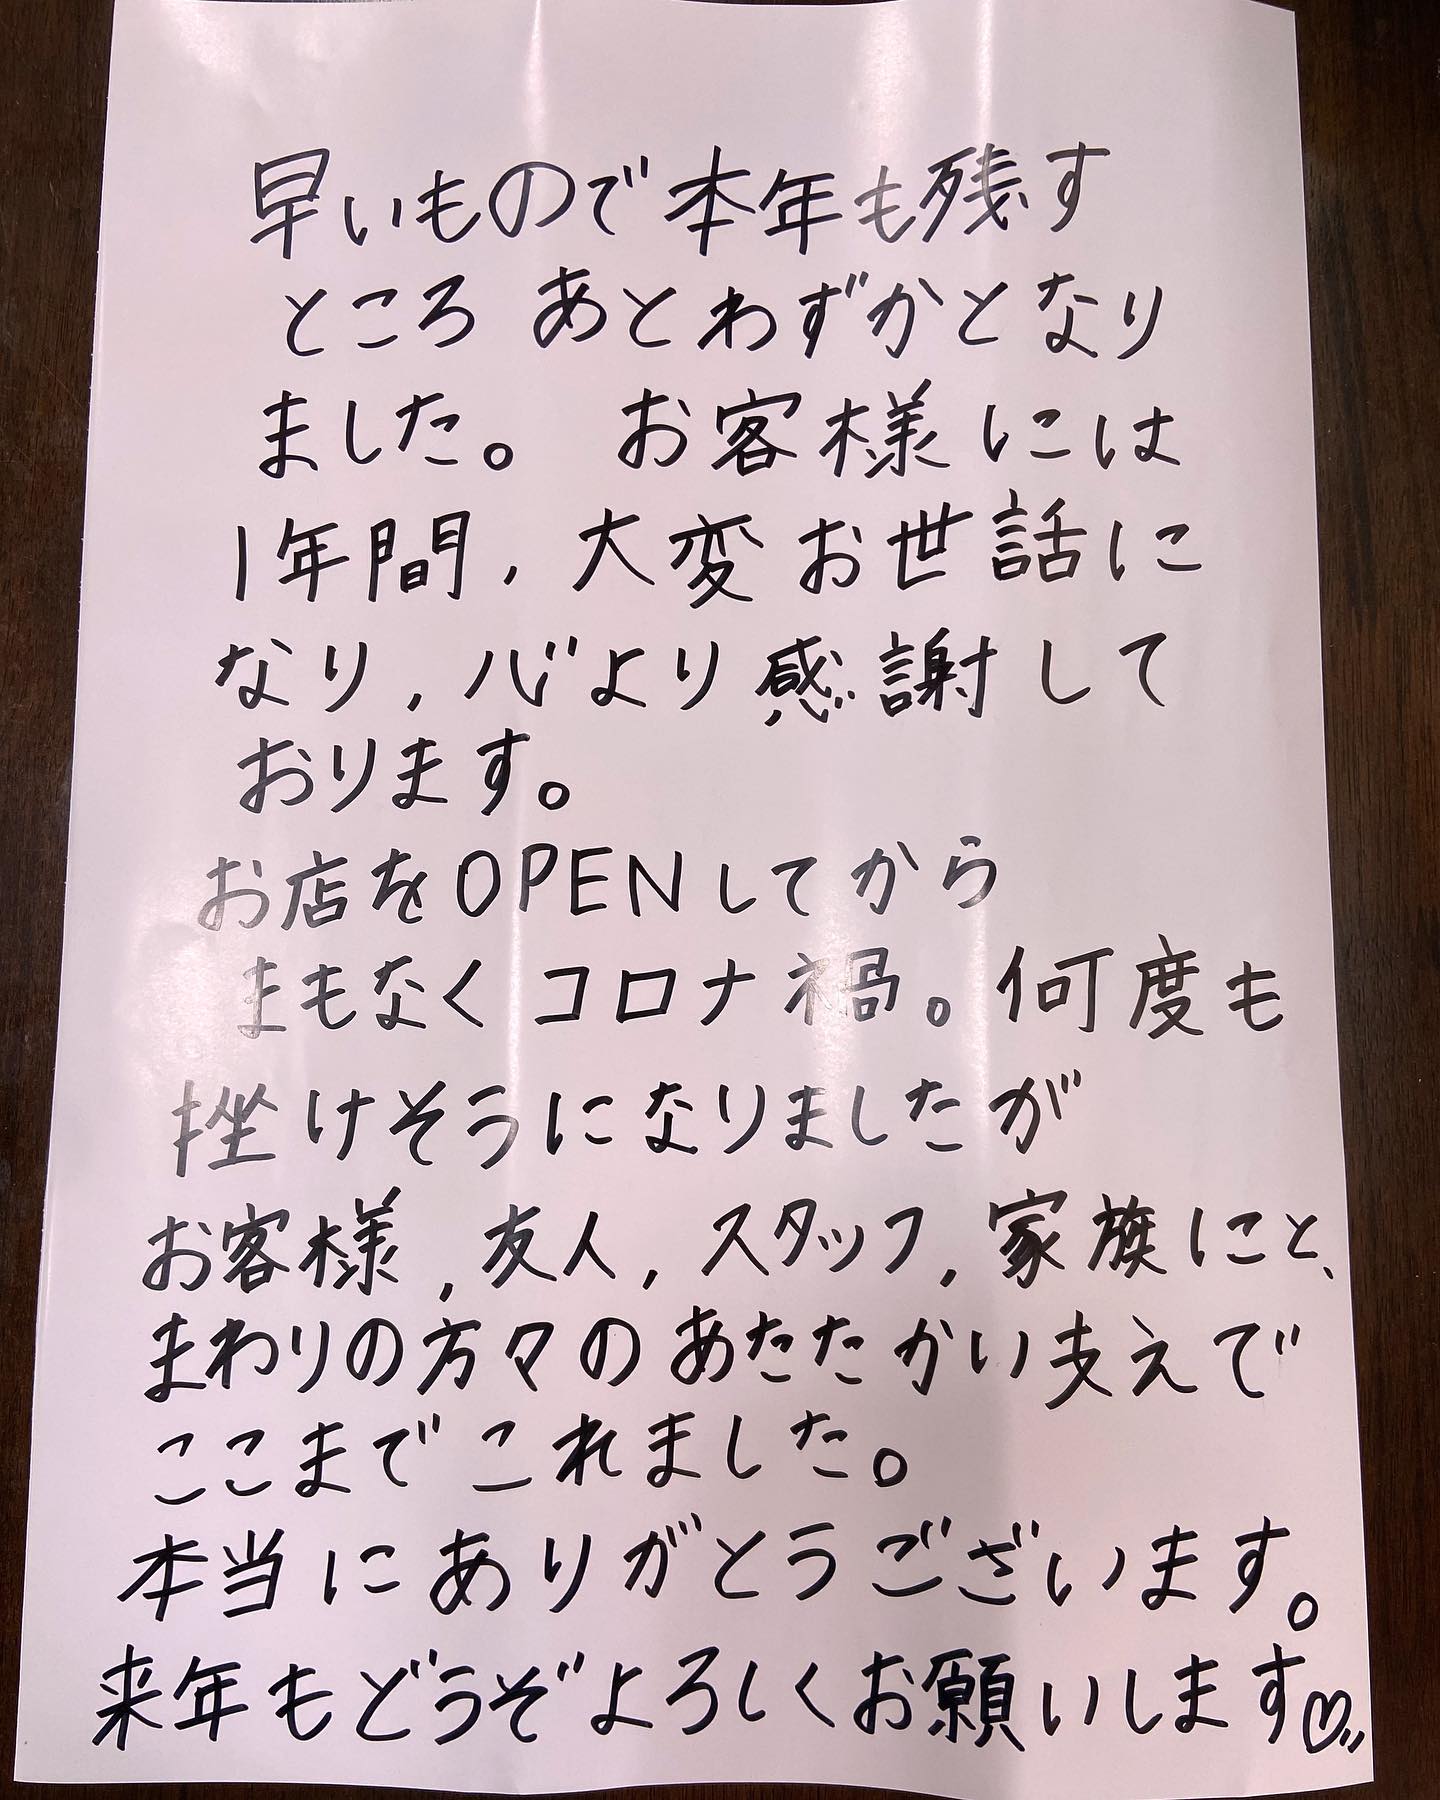 早いもので本年も残す
ところ あとわずかとなり
ました。 お客様には
1年間, 大変お世話に
なり, 心より感謝して
おります。
お店をOPENしてから
まもなくコロナ禍。何度も
挫けそうになりましたが
お客様, 友人, スタッフ, 家族にと、
まわりの方々のあたたかい支えで
ここまでこれました。
本当にありがとうございます。
来年もどうぞよろしくお願いします♡〃